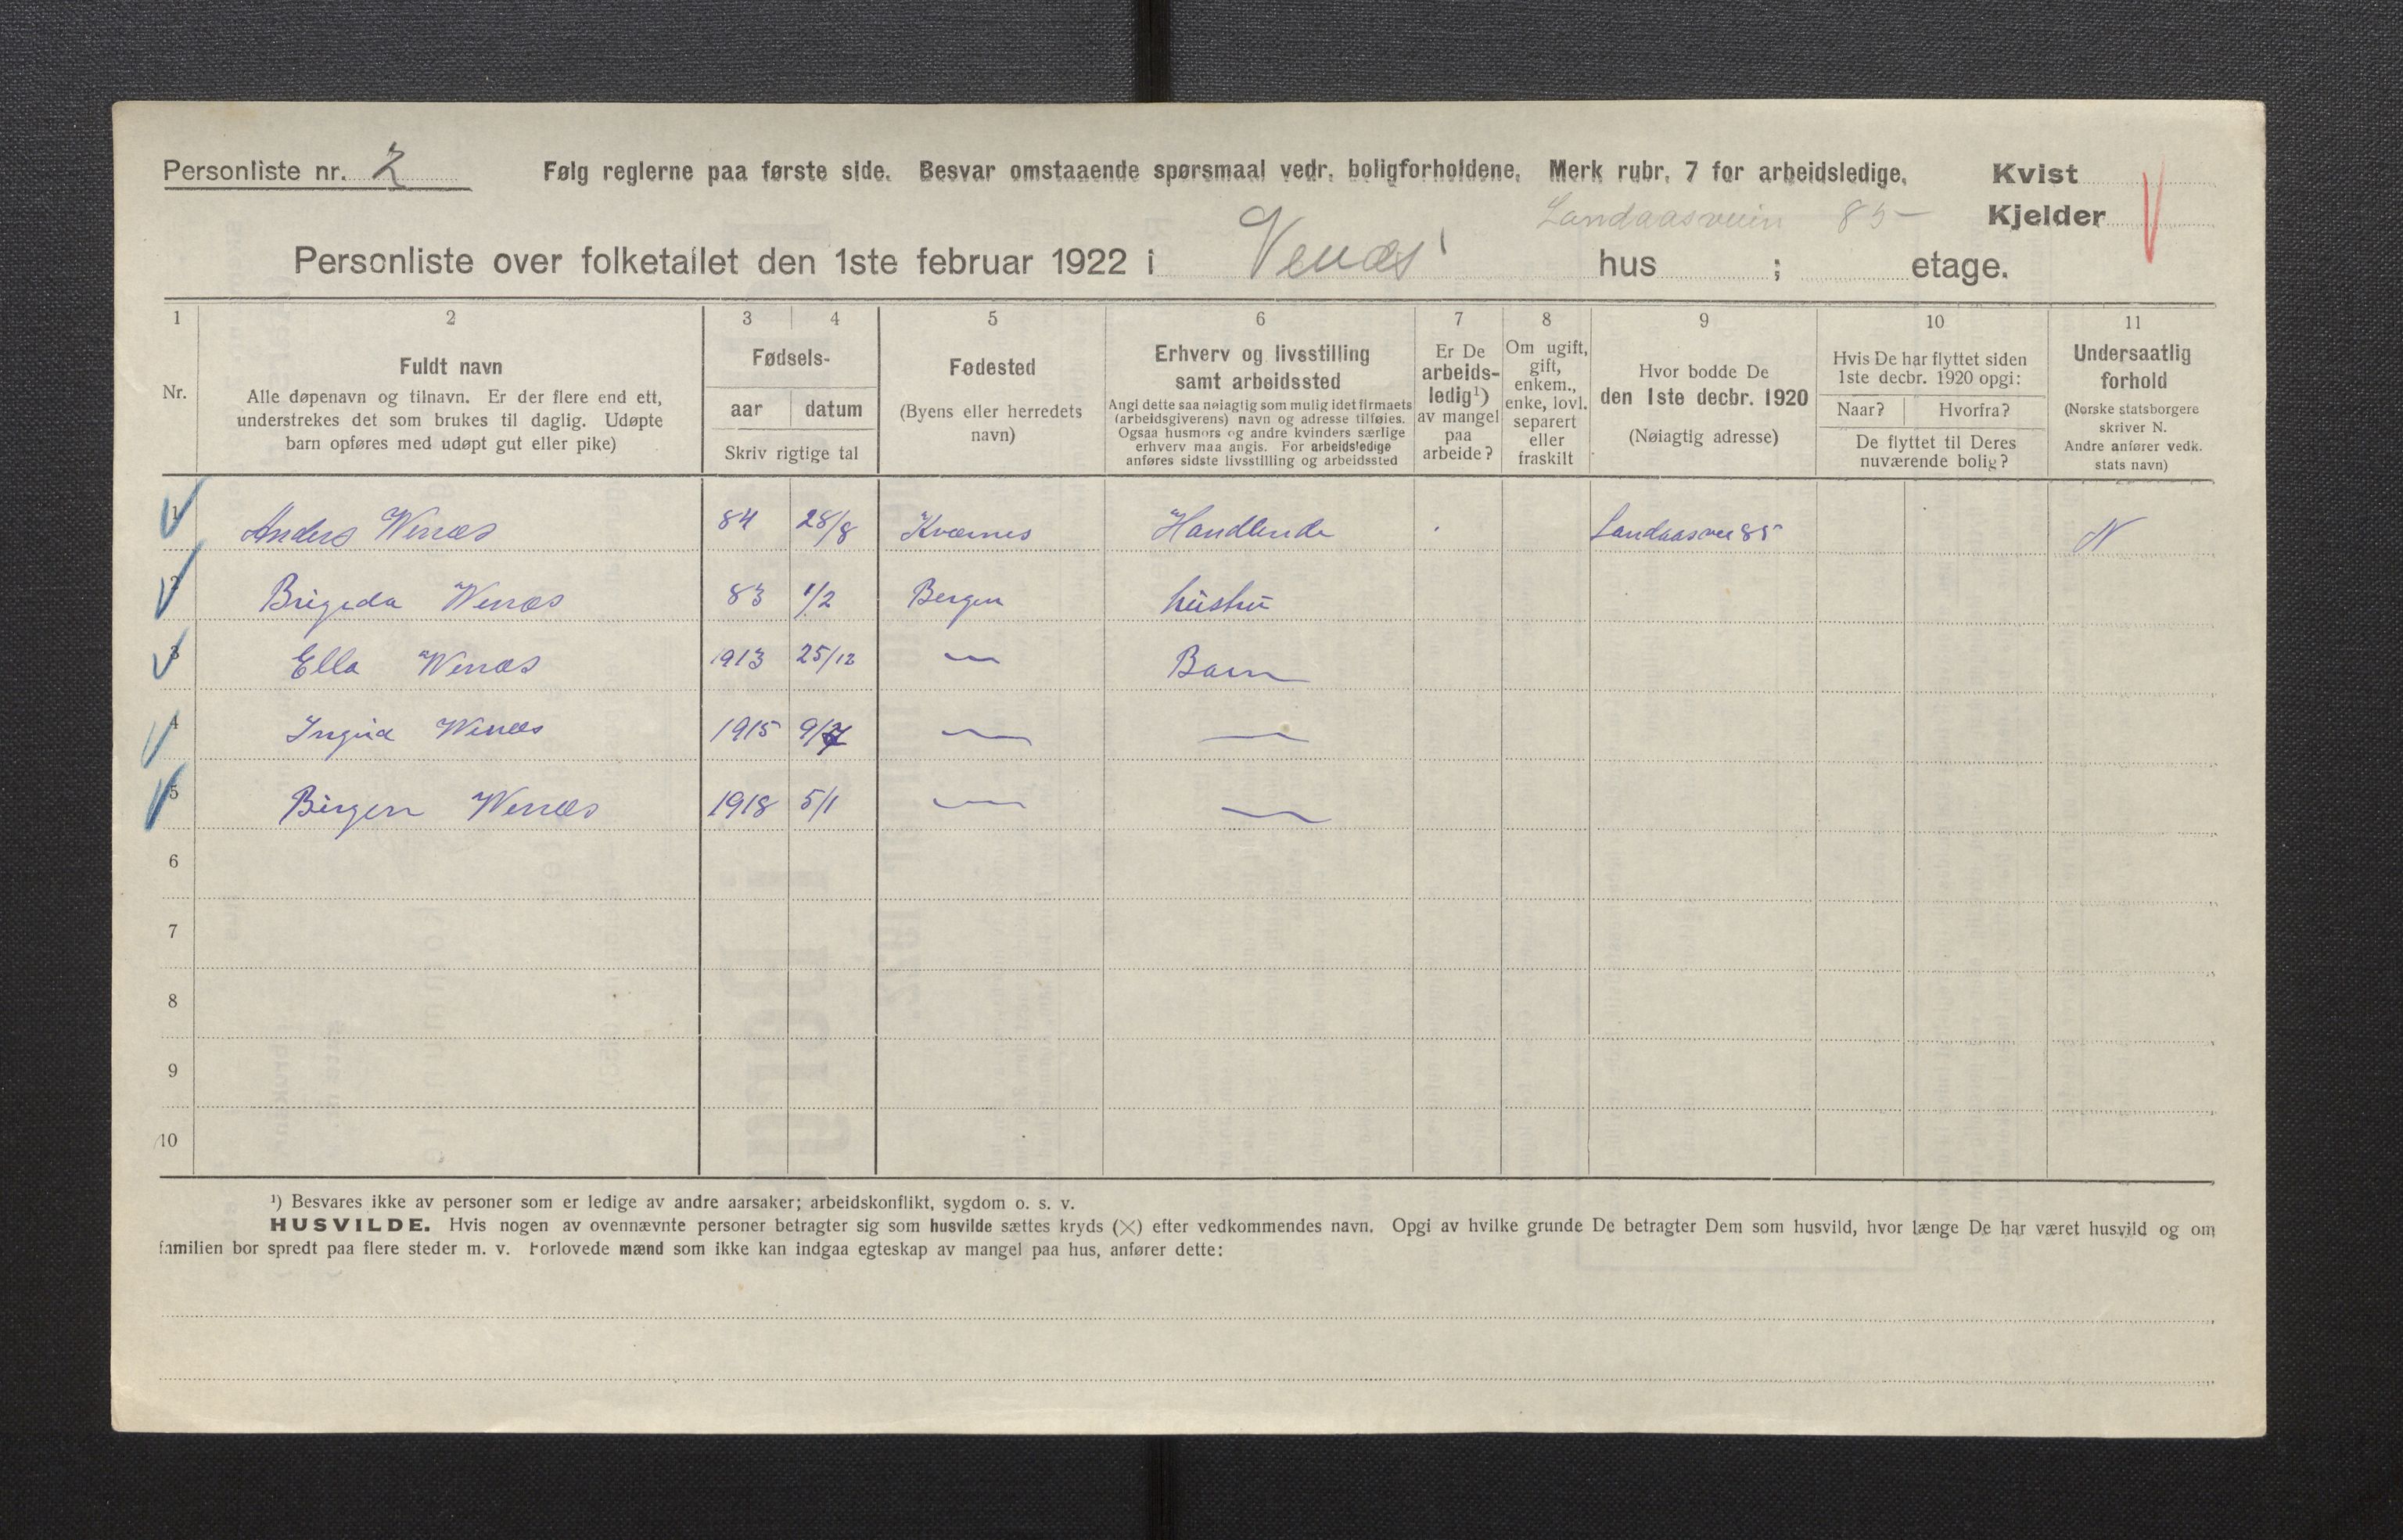 Personliste nr. 2 Følg reglerne paa første side. Besvar omstaaende spørsmaal vedr. boligforholdene. Merk rubr. 7 for arbeidsledige. Kvist
Landaasveien 85 Kjelder
Personliste over folketallet den 1ste februar 1922 i Venæs hus ; etage.
1 2 3 4 5 6 7 8 9 10 11
Nr.
Fuldt navn
Alle døpenavn og tilnavn. Er der flere end ett,
understrekes det som brukes til daglig. Udøpte
barn opføres med udøpt gut eller pike)
Fødsels-
aar datum
Skriv rigtige tal
Fødested
(Byens eller herredets
navn)
Erhverv og livsstilling
samt arbeidssted
Angi dette saa nøiagtig som mulig idet firmaets
(arbeidsgiverens) navn og adresse tilføies.
Ogsaa husmors og andre kvinders særlige
erhverv maa angis. For arbeidsledige
anføres sidste livsstilling og arbeidssted
Er De
arbeids-
ledig¹)
av mangel
paa
arbeide?
Om ugift,
gift,
enkem.,
enke, lovl.
separert
eller
fraskilt
Hvor bodde De
den 1ste decbr. 1920
(Nøiagtig adresse)
Hvis De har flyttet siden
1ste decbr. 1920 opgi:
Naar? Hvorfra?
De flyttet til Deres
nuværende bolig?
Undersaatlig
forhold
(Norske statsborgere
skriver N.
Andre anfører vedk.
stats navn)
1 Anders Wenæs 84 28/8 Kværnes Handlende Landaasvei 85 N
2 Brigeda Wenæs 83 1/2 Bergen hustru
3 Ella Wenæs 1913 25/12 — Barn
4 Ingrid Wenæs 1915 9/7 — —
5 Birger Wenæs 1918 5/1 — —
6
7
8
9
10
¹) Besvares ikke av personer som er ledige av andre aarsaker; arbeidskonflikt, sygdom o. s. v.
HUSVILDE. Hvis nogen av ovennævnte personer betragter sig som husvilde sættes kryds (×) efter vedkommendes navn. Opgi av hvilke grunde De betragter Dem som husvild, hvor længe De har været husvild og om
familien bor spredt paa flere steder m. v. Forlovede mænd som ikke kan indgaa egteskap av mangel paa hus, anfører dette: